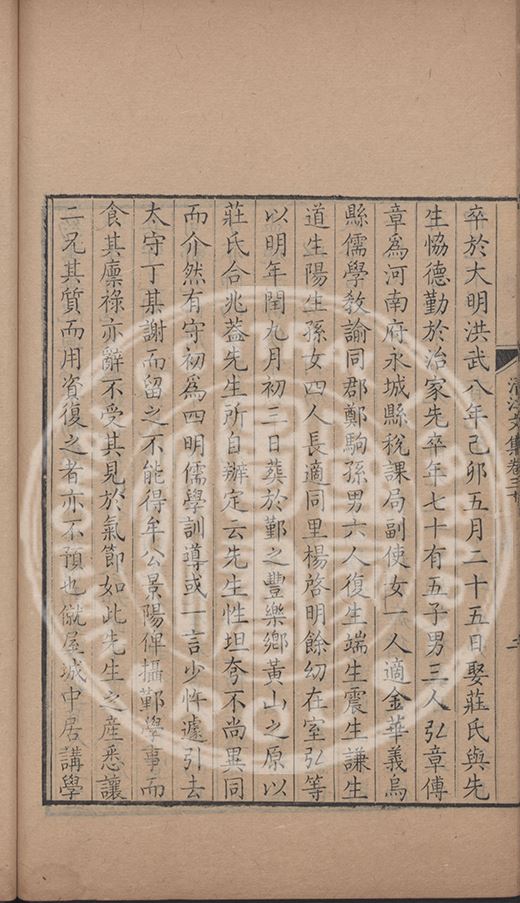 卒於大明洪武八年己卯五月二十五日娶莊氏與先
生恊德勤於治家先卒年七十有五子男三人弘章傅
章為河南府永城縣稅課局副使女一人適金華義烏
縣儒學敎諭同郡鄭駒孫男六人復生端生震生謙生
道生陽生孫女四人長適同里楊啓明餘㓜在室弘等
以明年閏九月初三日葬於鄞之豐樂鄉黃山之原以
莊氏合兆葢先生所自辦定云先生性坦夸不尚異同
而介然有守初為四明儒學訓導或一言少忤遽引去
太守丁某謝而留之不能得牟公景陽俾攝鄞學事而
食其廩祿亦辭不受其見於氣節如此先生之產悉讓
二兄其質而用資復之者亦不預也僦屋城中居講學